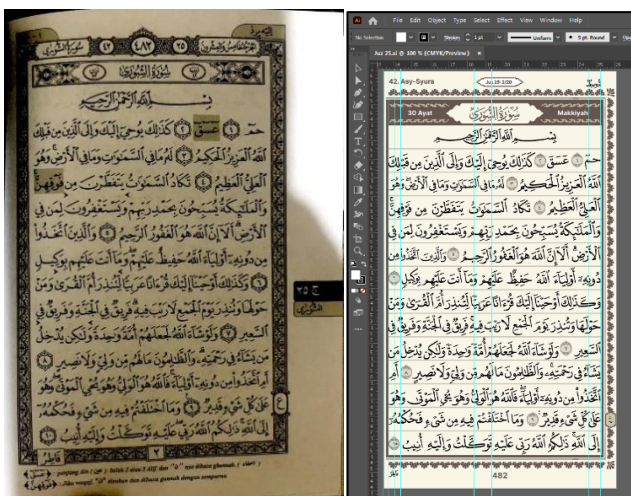 الجزء الخامس والعشرون ٢٥ ٤٨٢ ٤٢ سورة الشورى
سُوْرَةُ الشُّوْرٰى
بِسْمِ اللّٰهِ الرَّحْمٰنِ الرَّحِيْمِ
حٰمۤ ۝١ عۤسۤقۤ ۝٢ كَذٰلِكَ يُوْحِيْٓ اِلَيْكَ وَاِلَى الَّذِيْنَ مِنْ قَبْلِكَ
اللّٰهُ الْعَزِيْزُ الْحَكِيْمُ ۝٣ لَهٗ مَا فِى السَّمٰوٰتِ وَمَا فِى الْاَرْضِ وَهُوَ
الْعَلِيُّ الْعَظِيْمُ ۝٤ تَكَادُ السَّمٰوٰتُ يَتَفَطَّرْنَ مِنْ فَوْقِهِنَّ
وَالْمَلٰۤىِٕكَةُ يُسَبِّحُوْنَ بِحَمْدِ رَبِّهِمْ وَيَسْتَغْفِرُوْنَ لِمَنْ فِى
الْاَرْضِ اَلَآ اِنَّ اللّٰهَ هُوَ الْغَفُوْرُ الرَّحِيْمُ ۝٥ وَالَّذِيْنَ اتَّخَذُوْا
مِنْ دُوْنِهٖٓ اَوْلِيَاۤءَ اللّٰهُ حَفِيْظٌ عَلَيْهِمْ وَمَآ اَنْتَ عَلَيْهِمْ بِوَكِيْلٍ
۝٦ وَكَذٰلِكَ اَوْحَيْنَآ اِلَيْكَ قُرْاٰنًا عَرَبِيًّا لِّتُنْذِرَ اُمَّ الْقُرٰى وَمَنْ
حَوْلَهَا وَتُنْذِرَ يَوْمَ الْجَمْعِ لَا رَيْبَ فِيْهِ فَرِيْقٌ فِى الْجَنَّةِ وَفَرِيْقٌ فِى
السَّعِيْرِ ۝٧ وَلَوْ شَاۤءَ اللّٰهُ لَجَعَلَهُمْ اُمَّةً وَّاحِدَةً وَّلٰكِنْ يُّدْخِلُ
مَنْ يَّشَاۤءُ فِيْ رَحْمَتِهٖ وَالظّٰلِمُوْنَ مَا لَهُمْ مِّنْ وَّلِيٍّ وَّلَا نَصِيْرٍ ۝٨
اَمِ اتَّخَذُوْا مِنْ دُوْنِهٖٓ اَوْلِيَاۤءَ فَاللّٰهُ هُوَ الْوَلِيُّ وَهُوَ يُحْيِ الْمَوْتٰى وَهُوَ
عَلٰى كُلِّ شَيْءٍ قَدِيْرٌ ۝٩ وَمَا اخْتَلَفْتُمْ فِيْهِ مِنْ شَيْءٍ فَحُكْمُهٗٓ
اِلَى اللّٰهِ ذٰلِكُمُ اللّٰهُ رَبِّيْ عَلَيْهِ تَوَكَّلْتُ وَاِلَيْهِ اُنِيْبُ ۝١٠
ج ٢٥
الشورى
ع
٢
File Edit Object Type Select Effect View Window Help
No Selection Stroke: 1 pt Uniform 5 pt. Round
Juz 25.ai @ 100 % (CMYK/Preview)
42. Asy-Syura
30 Ayat سُوْرَةُ الشُّوْرٰى Makkiyah
بِسْمِ اللّٰهِ الرَّحْمٰنِ الرَّحِيْمِ
حٰمۤ ۝١ عۤسۤقۤ ۝٢ كَذٰلِكَ يُوْحِيْٓ اِلَيْكَ وَاِلَى الَّذِيْنَ مِنْ قَبْلِكَ
اللّٰهُ الْعَزِيْزُ الْحَكِيْمُ ۝٣ لَهٗ مَا فِى السَّمٰوٰتِ وَمَا فِى الْاَرْضِ وَهُوَ
الْعَلِيُّ الْعَظِيْمُ ۝٤ تَكَادُ السَّمٰوٰتُ يَتَفَطَّرْنَ مِنْ فَوْقِهِنَّ
وَالْمَلٰۤىِٕكَةُ يُسَبِّحُوْنَ بِحَمْدِ رَبِّهِمْ وَيَسْتَغْفِرُوْنَ لِمَنْ فِى
الْاَرْضِ اَلَآ اِنَّ اللّٰهَ هُوَ الْغَفُوْرُ الرَّحِيْمُ ۝٥ وَالَّذِيْنَ اتَّخَذُوْا مِنْ
دُوْنِهٖٓ اَوْلِيَاۤءَ اللّٰهُ حَفِيْظٌ عَلَيْهِمْ وَمَآ اَنْتَ عَلَيْهِمْ بِوَكِيْلٍ ۝٦
وَكَذٰلِكَ اَوْحَيْنَآ اِلَيْكَ قُرْاٰنًا عَرَبِيًّا لِّتُنْذِرَ اُمَّ الْقُرٰى وَمَنْ
حَوْلَهَا وَتُنْذِرَ يَوْمَ الْجَمْعِ لَا رَيْبَ فِيْهِ فَرِيْقٌ فِى الْجَنَّةِ وَفَرِيْقٌ فِى
السَّعِيْرِ ۝٧ وَلَوْ شَاۤءَ اللّٰهُ لَجَعَلَهُمْ اُمَّةً وَّاحِدَةً وَّلٰكِنْ يُّدْخِلُ مَنْ
يَّشَاۤءُ فِيْ رَحْمَتِهٖ وَالظّٰلِمُوْنَ مَا لَهُمْ مِّنْ وَّلِيٍّ وَّلَا نَصِيْرٍ ۝٨ اَمِ
اتَّخَذُوْا مِنْ دُوْنِهٖٓ اَوْلِيَاۤءَ فَاللّٰهُ هُوَ الْوَلِيُّ وَهُوَ يُحْيِ الْمَوْتٰى وَهُوَ
عَلٰى كُلِّ شَيْءٍ قَدِيْرٌ ۝٩ وَمَا اخْتَلَفْتُمْ فِيْهِ مِنْ شَيْءٍ فَحُكْمُهٗٓ
اِلَى اللّٰهِ ذٰلِكُمُ اللّٰهُ رَبِّيْ عَلَيْهِ تَوَكَّلْتُ وَاِلَيْهِ اُنِيْبُ ۝١٠
482